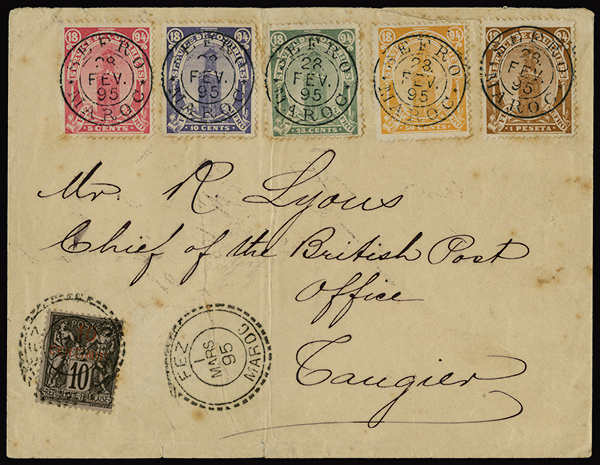 18 94 18 94 18 94 18 94 18 94
SEFRO 28 FEV. 95 MAROC
SEFRO 28 FEV. 95 MAROC
SEFRO 28 FEV. 95 MAROC
SEFRO 28 FEV. 95 MAROC
SEFRO 28 FEV. 95 MAROC
5 CENTS 10 CENTS 25 CENTS 50 CENTS 1 PESETA
Mr. R. Lyons
Chief of the British Post
Office
Tangier
FEZ
MARS
95
MAROC
POSTE
10